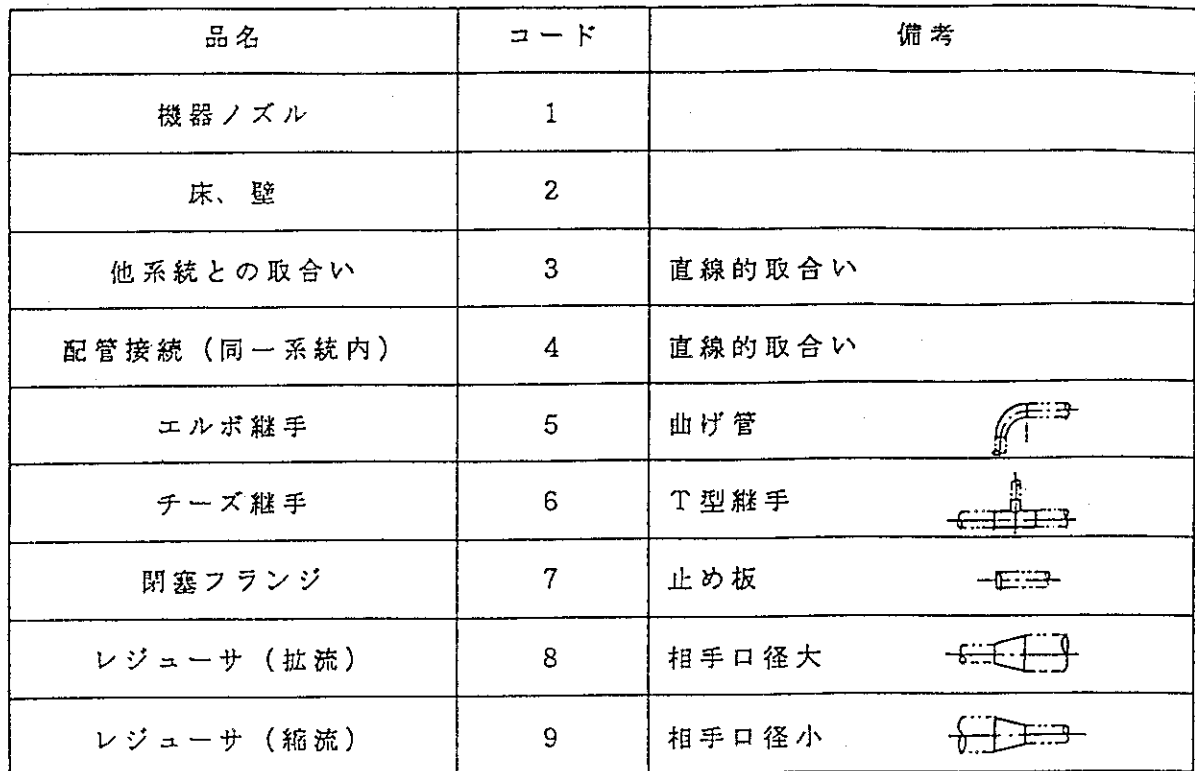 品名 コード 備考
機器ノズル 1
床、壁 2
他系統との取合い 3 直線的取合い
配管接続（同一系統内） 4 直線的取合い
エルボ継手 5 曲げ管
チーズ継手 6 T型継手
閉塞フランジ 7 止め板
レジューサ（拡流） 8 相手口径大
レジューサ（縮流） 9 相手口径小